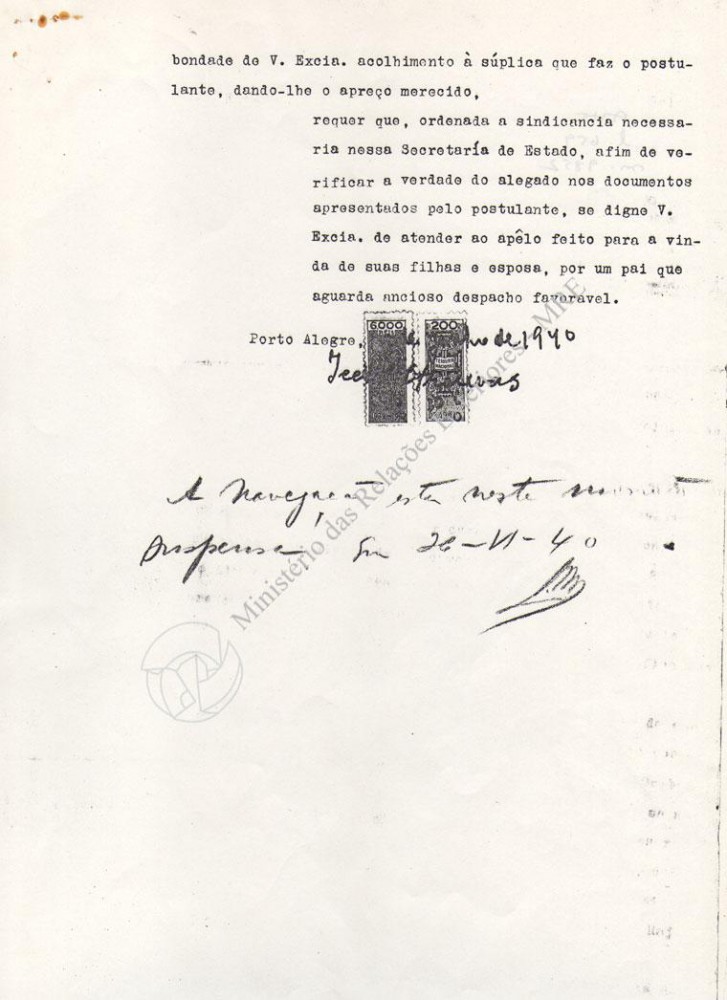 bondade de V. Excia. acolhimento à súplica que faz o postu-
lante, dando-lhe o apreço merecido,
requer que, ordenada a sindicancia necessa-
ria nessa Secretaría de Estado, afim de ve-
rificar a verdade do alegado nos documentos
apresentados pelo postulante, se digne V.
Excia. de atender ao apêlo feito para a vin-
da de suas filhas e esposa, por um pai que
aguarda ancioso despacho favoravel.
6000 200
Porto Alegre, de 1940
A navegação está neste
suspensa Em 26-VI-40
Ministério das Relações Exteriores - MRE